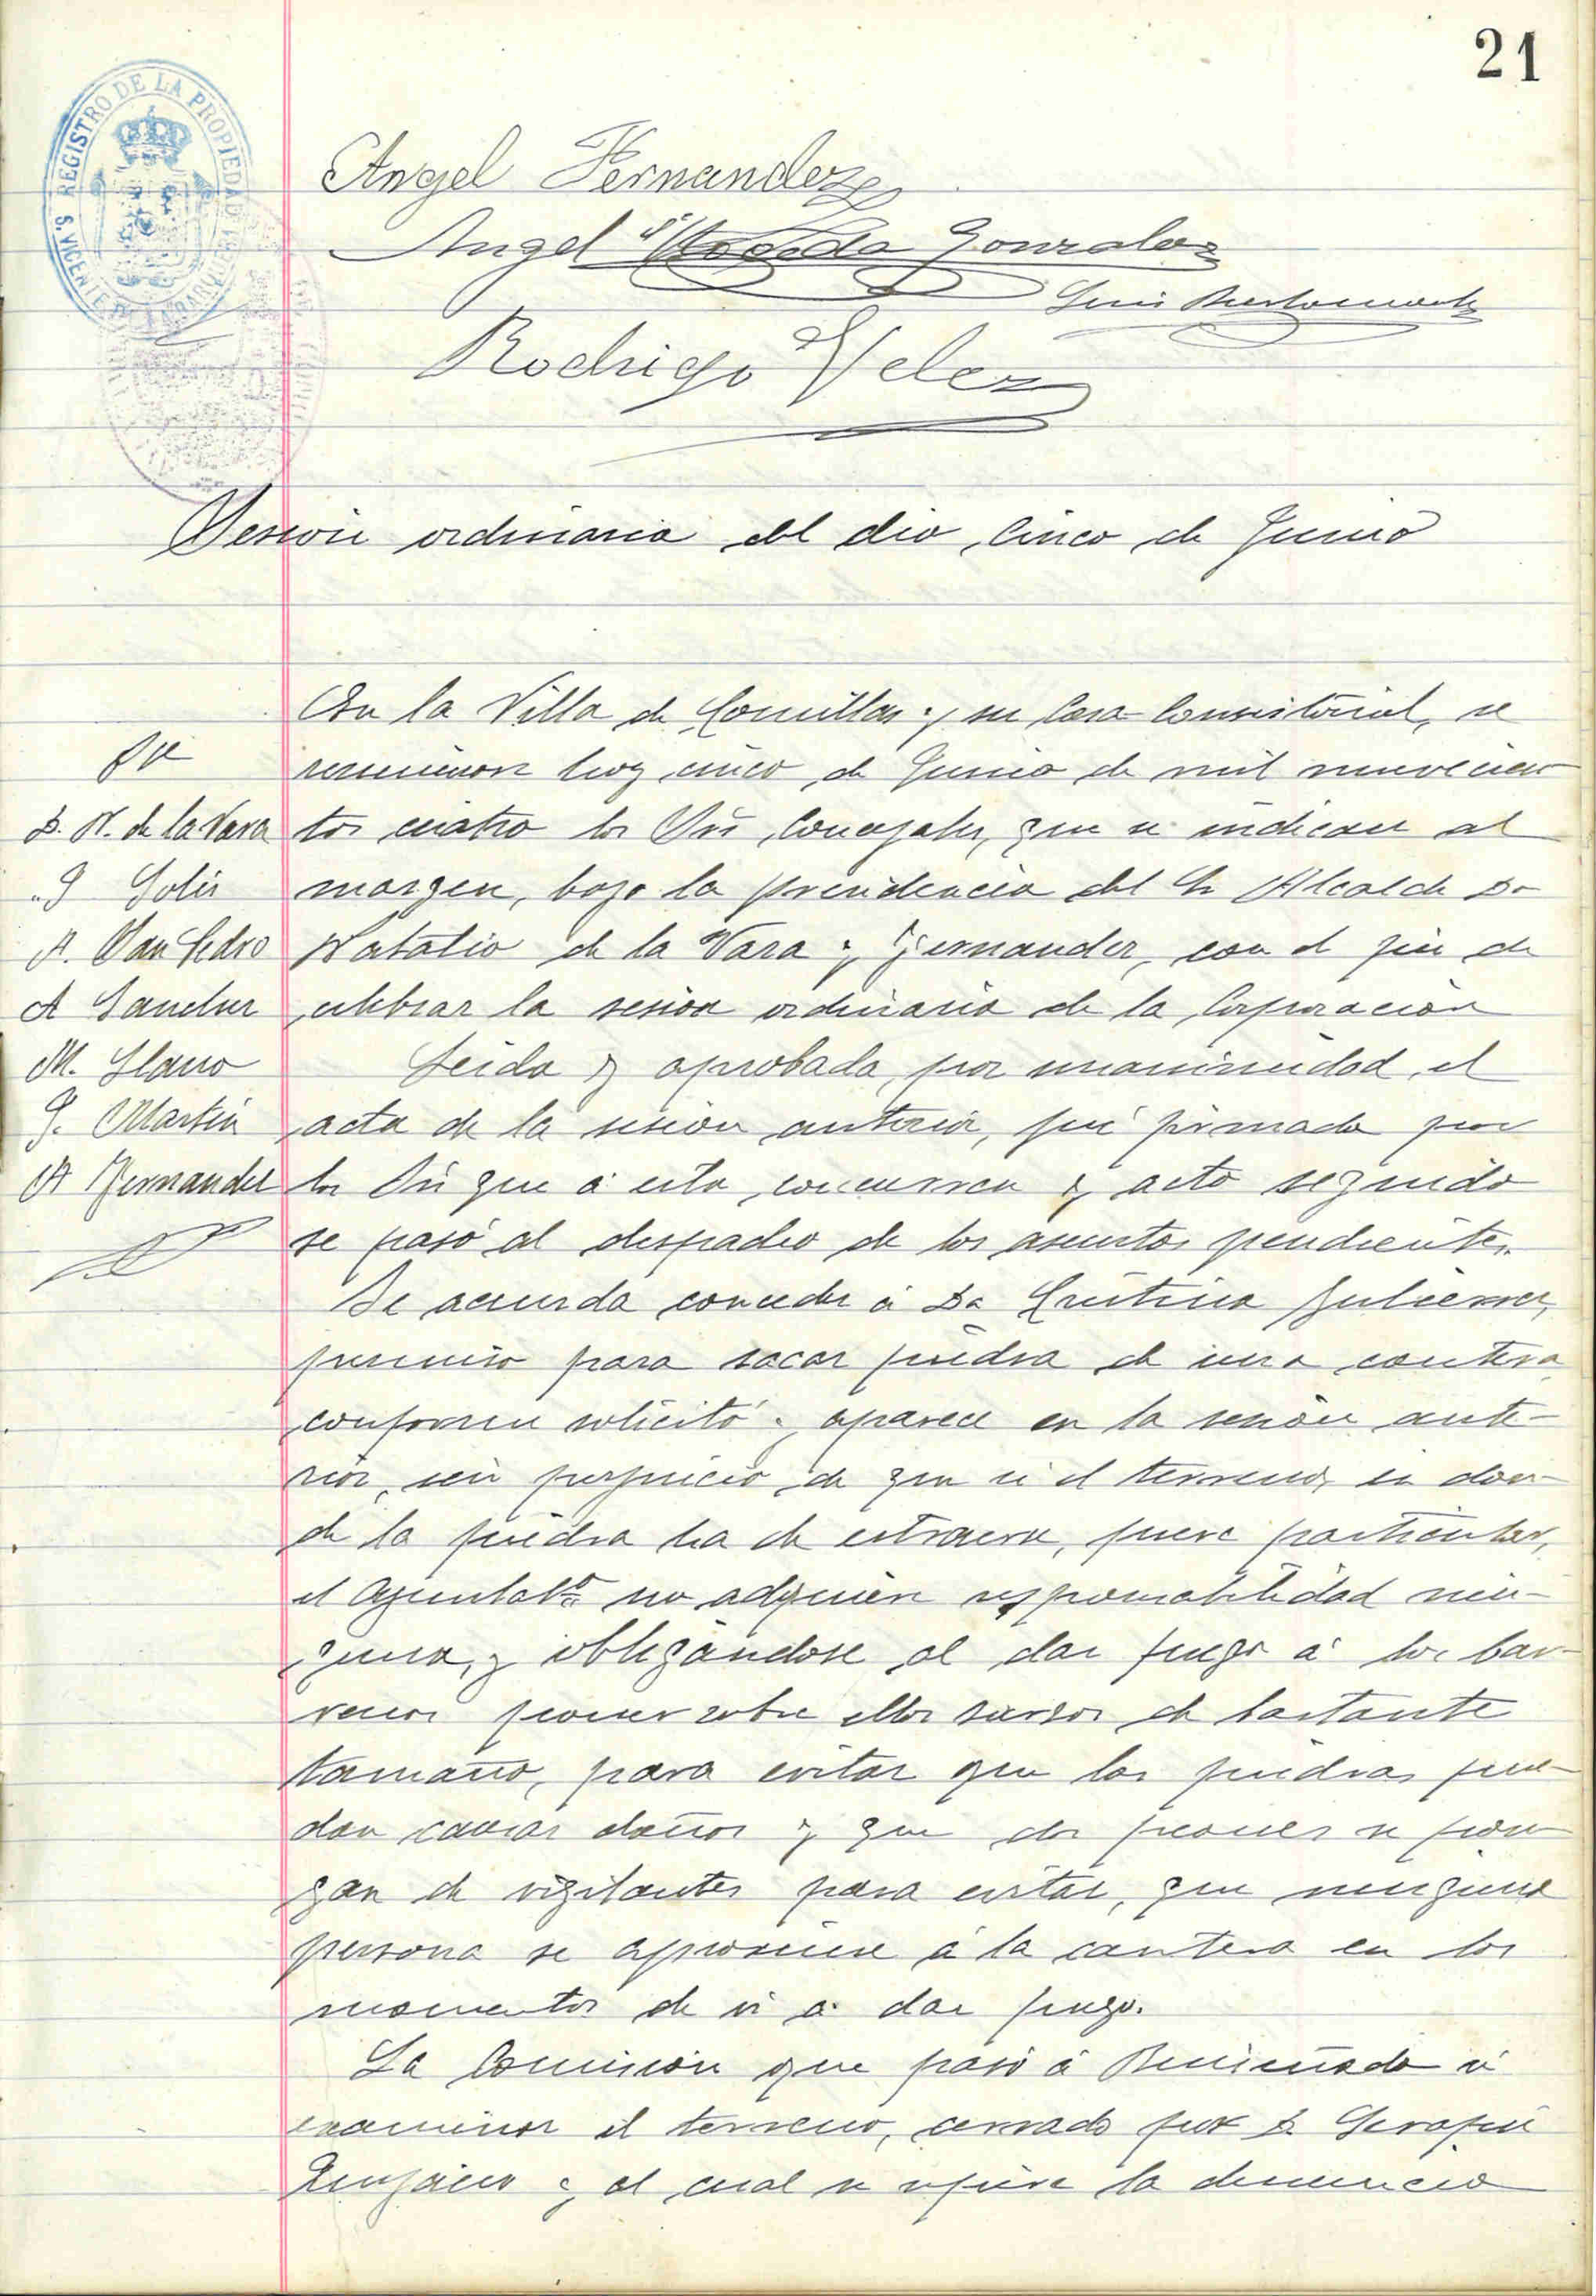 21
REGISTRO DE LA PROPIEDAD
S. VICENTE DE LA BARQUERA
Angel Fernandez
Angel Gonzalez
Luis
Rodrigo Velez
Sesion ordinaria del dia cinco de Junio
En la Villa de Comillas y su Casa Consistorial, se
reunieron hoy cinco de Junio de mil novecien
tos cuatro los Sres Concejales, que se indican al
margen, bajo la presidencia del Sr Alcalde Dn
Natalio de la Vara y Fernandez, con el fin de
celebrar la sesion ordinaria de la Corporacion
Leida y aprobada, por unanimidad, el
acta de la sesion anterior, fué firmada por
los Sres que á esta concurren y acto seguido
se pasó al despacho de los asuntos pendientes.
Se acuerda conceder á Da Cristina Gutierrez,
permiso para sacar piedra de una cantera
conforme solicitó y aparece en la sesion ante-
rior, sin perjuicio de que si el terreno, en don-
de la piedra ha de estraerse, fuere particular,
el Ayuntato no adquiere responsabilidad nin-
guna, y obligándose al dar fuego á los bar-
renos poner sobre ellos de bastante
tamaño, para evitar que las piedras pue-
dan causar daños y que dos peones se pon
gan de vigilantes para evitar, que ninguna
persona se aproxime á la cantera en los
momentos de ir á dar fuego.
La Comision que pasó á á
examinar el terreno, cerrado por D. Serafin
y al cual se refiere la denuncia
D. N. de la Vara
" J Solis
A. San Pedro
A Sanchez
M. Llano
J. Martin
A Fernandez